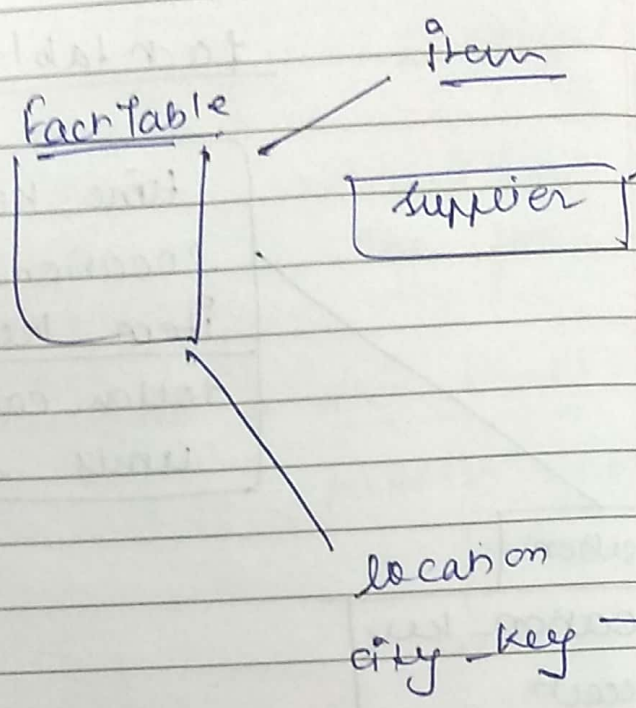 item
Fact Table
supplier
location
city_key